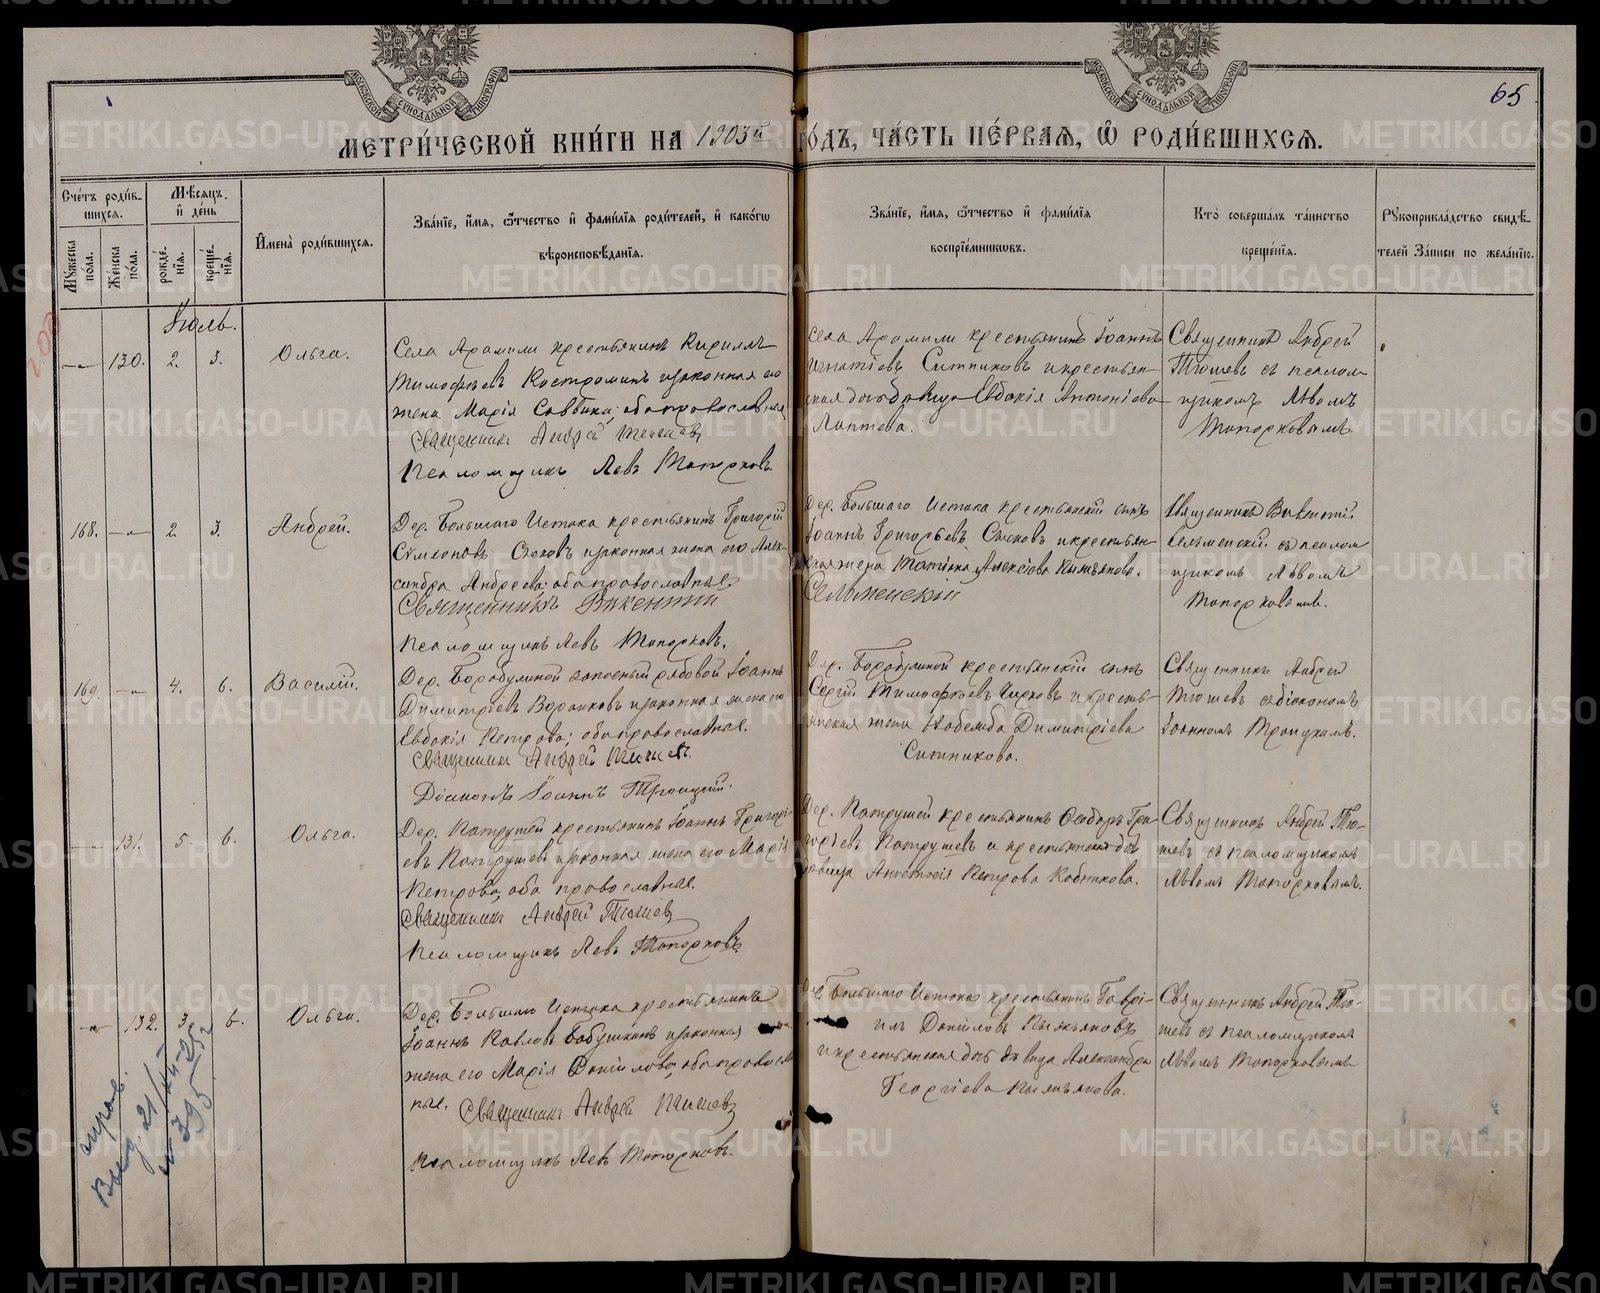 65
МЕТРИ́ЧЕСКОЙ КНИ́ГИ НА 1903й ГО́ДЪ, ЧА́СТЬ ПЕ́РВАЯ, Ѡ РОДИ́ВШИХСЯ.
Сче́тъ роди́в-
шихся.
Мꙋжеска по́ла.
Же́нска по́ла.
Мѣ́сяцъ и де́нь
рожде́-
нїя.
креще́-
нїя.
И҆мена̀ роди́вшихся.
Зва́нїе, и҆́мя, ѻ҆́тчество и҆ фами́лїя роди́телей, и҆ како́гѡ
вѣроисповѣ́данїя.
Зва́нїе, и҆́мя, ѻ҆́тчество и҆ фами́лїя
воспрїе́мникѡвъ.
Кто̀ соверша́лъ та́инство
креще́нїя.
Рꙋкоприкла́дство свидѣ́-
телей за́писи по жела́нїю.
Іюль.
130. 2. 3. Ольга.
Села Арамили крестьянинъ Кириллъ
Тимофѣевъ Костроминъ и законная его
жена Марія Саввина; оба православные
Священникъ Андрей Тюшевъ
Псаломщикъ Левъ Топорковъ
Села Арамили крестьянинъ Іоаннъ
Игнатіевъ Ситниковъ и крестьян-
ская дочь девица Евдокія Антоніева
Лаптева.
Священникъ Андрей
Тюшевъ съ псалом-
щикомъ Львомъ
Топорковымъ.
168. 2. 3. Андрей.
Дер. Большаго Истока крестьянинъ Григорій
Сѵмеоновъ и законная жена его Алек-
сандра Андреева; оба православные.
Священникъ Викентій Сельменскій
Псаломщикъ Левъ Топорковъ.
Дер. Большаго Истока крестьянскій сынъ
Іоаннъ Григорьевъ и крестьян-
ская жена Татіана Алексіева
Священникъ Викентій
Сельменскій съ псалом
щикомъ Львомъ
Топорковымъ.
169. 4. 6. Василій.
Дер. Бородулиной запасный рядовой Іоаннъ
Димитріевъ Воронковъ и законная жена его
Евдокія Петрова; оба православные.
Священникъ Андрей Тюшевъ.
Діаконъ Іоаннъ Троицкій.
Дер. Бородулиной крестьянскій сынъ
Сергій Тимофѣевъ и кресть-
янская жена Надежда Димитріева
Ситникова.
Священникъ Андрей
Тюшевъ съ діакономъ
Іоанномъ Троицкимъ.
131. 5. 6. Ольга.
Дер. Патрушей крестьянинъ Іоаннъ Григорі-
евъ Патрушевъ и законная жена его Марія
Петрова, оба православные.
Священникъ Андрей Тюшевъ
Псаломщикъ Левъ Топорковъ
Дер. Патрушей крестьянинъ Ѳеодоръ Гри-
горіевъ Патрушевъ и крестьянская
девица Анастасія Петрова
Священникъ Андрей Тю-
шевъ съ псаломщикомъ
Львомъ Топорковымъ.
132. 3. 6. Ольга.
Дер. Большаго Истока крестьянинъ
Іоаннъ Павловъ Бабушкинъ и законная
жена его Марія Даніилова; оба православ-
ные. Священникъ Андрей Тюшевъ
Псаломщикъ Левъ Топорковъ.
Дер. Большаго Истока крестьянинъ Гаврі-
илъ Даніиловъ
и крестьянская дочь девица Александра
Георгіева
Священникъ Андрей Тю-
шевъ съ псаломщикомъ
Львомъ Топорковымъ
METRIKI.GASO-URAL.RU